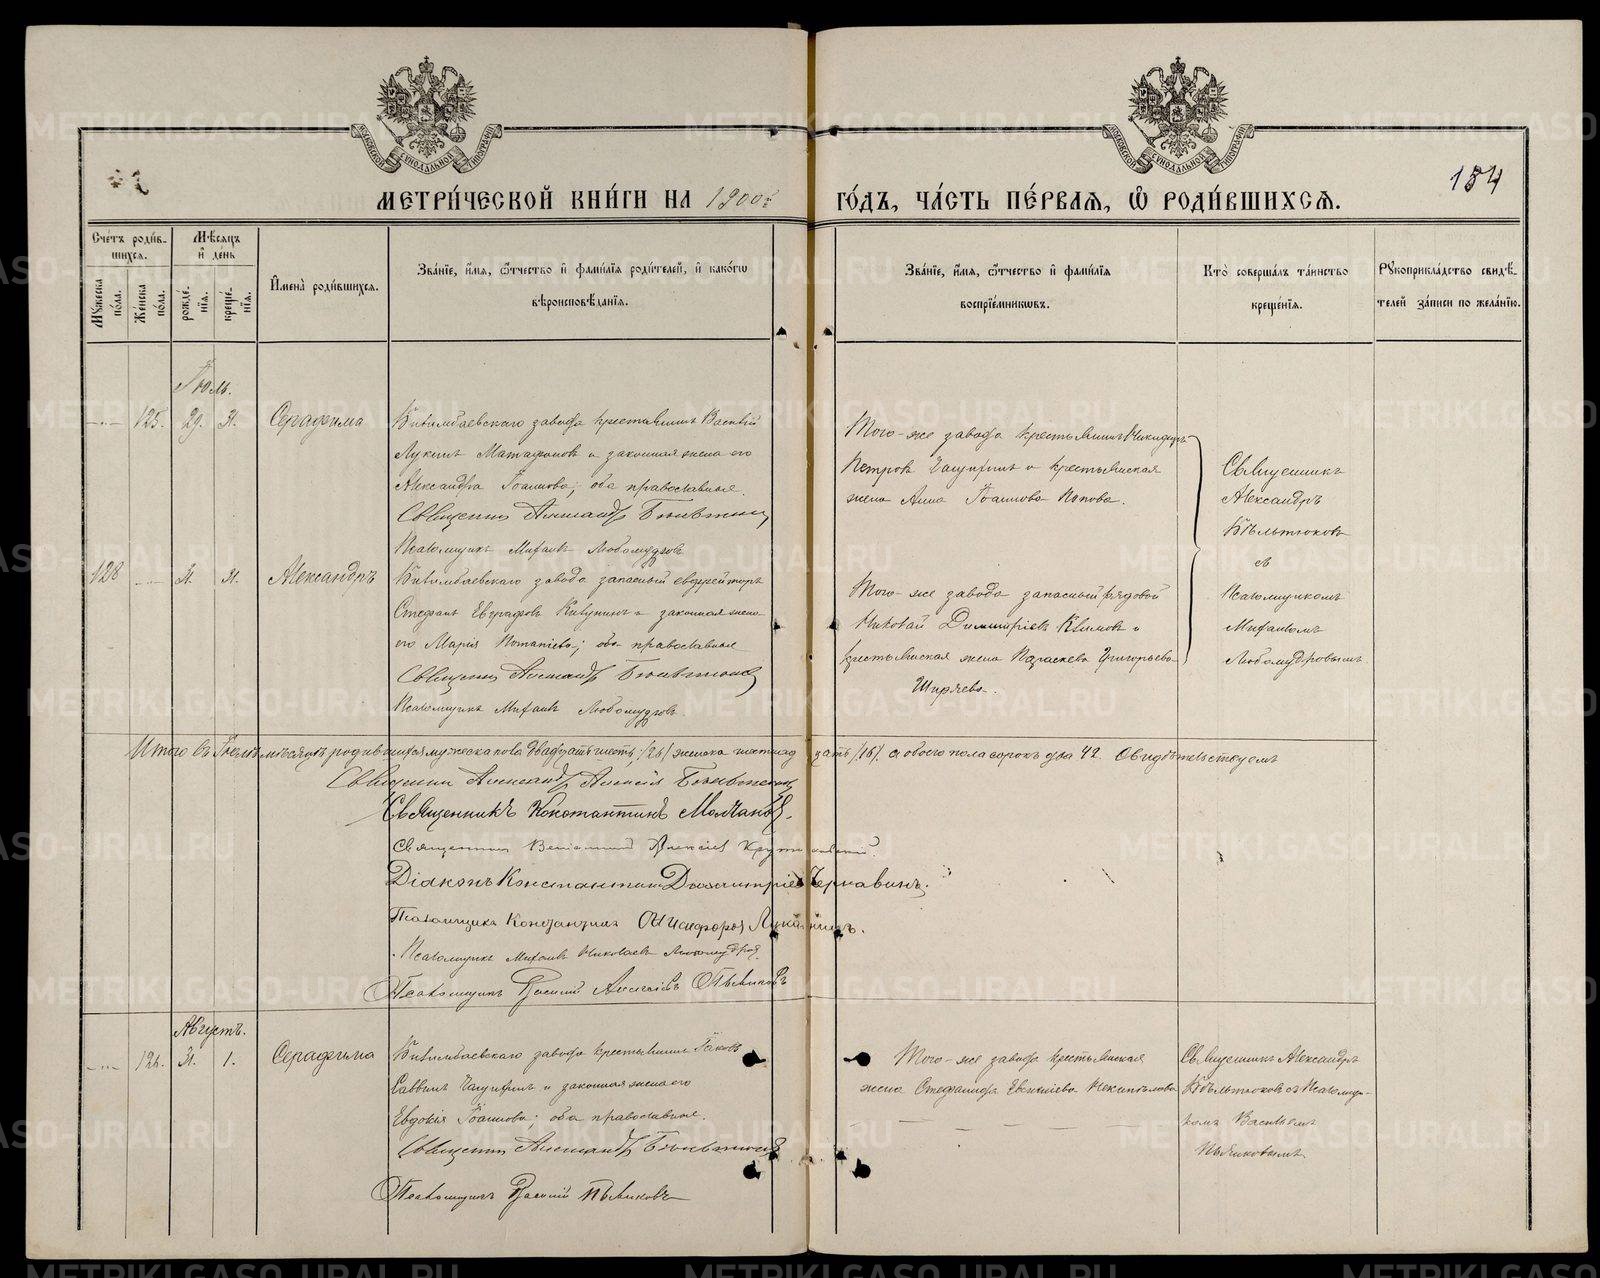 МОСКОВСКОЙ СѴНОДАЛЬНОЙ ТИПОГРАФІИ
МОСКОВСКОЙ СѴНОДАЛЬНОЙ ТИПОГРАФІИ
154
МЕТРИ́ЧЕСКОЙ КНИ́ГИ НА 1900й ГО́ДЪ, ЧА́СТЬ ПЕ́РВАѦ, Ѽ РОДИ́ВШИХСѦ.
Счетъ роди́вшихся.
Мужеска по́ла.
Же́нска по́ла.
Мѣсяцъ и де́нь
рожде́нія.
креще́нія.
Имена̀ роди́вшихся.
Зва́ніе, и́мя, ѻ҆́тчество и фами́лія роди́телей, и како́гѡ
вѣроисповѣ́данія.
Зва́ніе, и́мя, ѻ҆́тчество и фами́лія
воспріе́мниковъ.
Кто̀ соверша́лъ та́инство
креще́нія.
Рꙋкоприкла́дство свидѣ́-
телей за́писи по жела́нію.
Іюль.
125. 29. 31. Серафима
Билимбаевскаго завода крестьянинъ Василій
Лукинъ Матафоновъ и законная жена его
Александра Іоаннова; оба православные.
Священникъ Александръ Бѣльтюковъ
Псаломщикъ Михаилъ Любомудровъ
Того-же завода крестьянинъ Никифоръ
Петровъ Чащихинъ и крестьянская
жена Анна Іоаннова Попова.
Священникъ
Александръ
Бѣльтюковъ
съ
Псаломщикомъ
Михаиломъ
Любомудровымъ
128 31. 31. Александръ
Билимбаевскаго завода запасный ефрейторъ
Стефанъ Евграфовъ и законная жена
его Марія Потапіева; оба православные
Священникъ Александръ Бѣльтюковъ
Псаломщикъ Михаилъ Любомудровъ
Того-же завода запасный рядовой
Николай Димитріевъ Климовъ и
крестьянская жена Параскева Григорьева
Ширяева.
Итого въ Іюлѣ мѣсяцѣ родившихся мужеска пола двадцать шесть /26/ женска шестнадцать /16/ а обоего пола сорокъ два 42. Свидѣтельствуемъ
Священникъ Александръ Алексіевъ Бѣльтюковъ
Священникъ Константинъ Молчановъ.
Священникъ Веніаминъ Алексіевъ
Діаконъ Константинъ Димитріевъ Чернавинъ.
Псаломщикъ Константинъ
Псаломщикъ Михаилъ Николаевъ Любомудровъ
Псаломщикъ Василій Алексіевъ Пьянковъ
Августъ.
126. 31. 1. Серафима
Билимбаевскаго завода крестьянинъ Іаковъ
Саввинъ Чащихинъ и законная жена его
Евдокія Іоаннова; оба православные.
Священникъ Александръ Бѣльтюковъ
Псаломщикъ Василій Пьянковъ
Того-же завода крестьянская
жена Стефанида
Священникъ Александръ
Бѣльтюковъ съ Псаломщи-
комъ Василіемъ
Пьянковымъ
METRIKI.GASO-URAL.RU